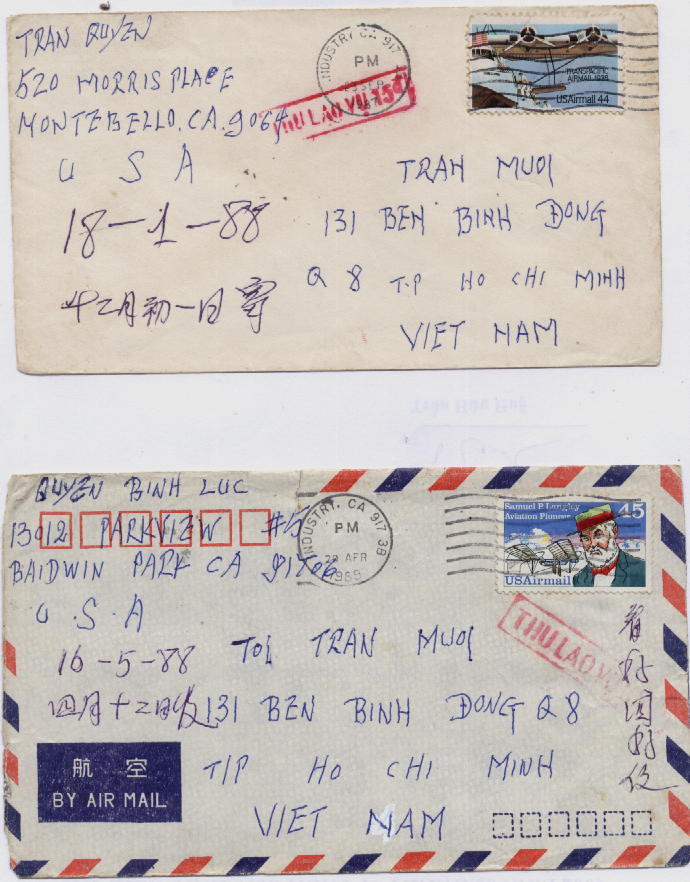 TRAN QUYEN
520 MORRIS PLACE
MONTEBELLO. CA. 9064
U S A
18-1-88
十二月初一日寄
INDUSTRY, CA 917
PM
1987
THU LAO VU 15đ
TRANSPACIFIC
AIRMAIL 1935
USAirmail 44
TRAN MUOI
131 BEN BINH DONG
Q 8 T.P HO CHI MINH
VIET NAM
QUYEN BINH LUC
13012 PARKVIEW #5
BAIDWIN PARK CA 91706
U.S.A
16-5-88
四月十二日收
INDUSTRY, CA 917 38
PM
29 APR
1989
Samuel P. Langley
Aviation Pioneer
45
USAirmail
THU LAO
TOI TRAN MUOI
131 BEN BINH DONG Q 8
T/P HO CHI MINH
VIET NAM
航 空
BY AIR MAIL